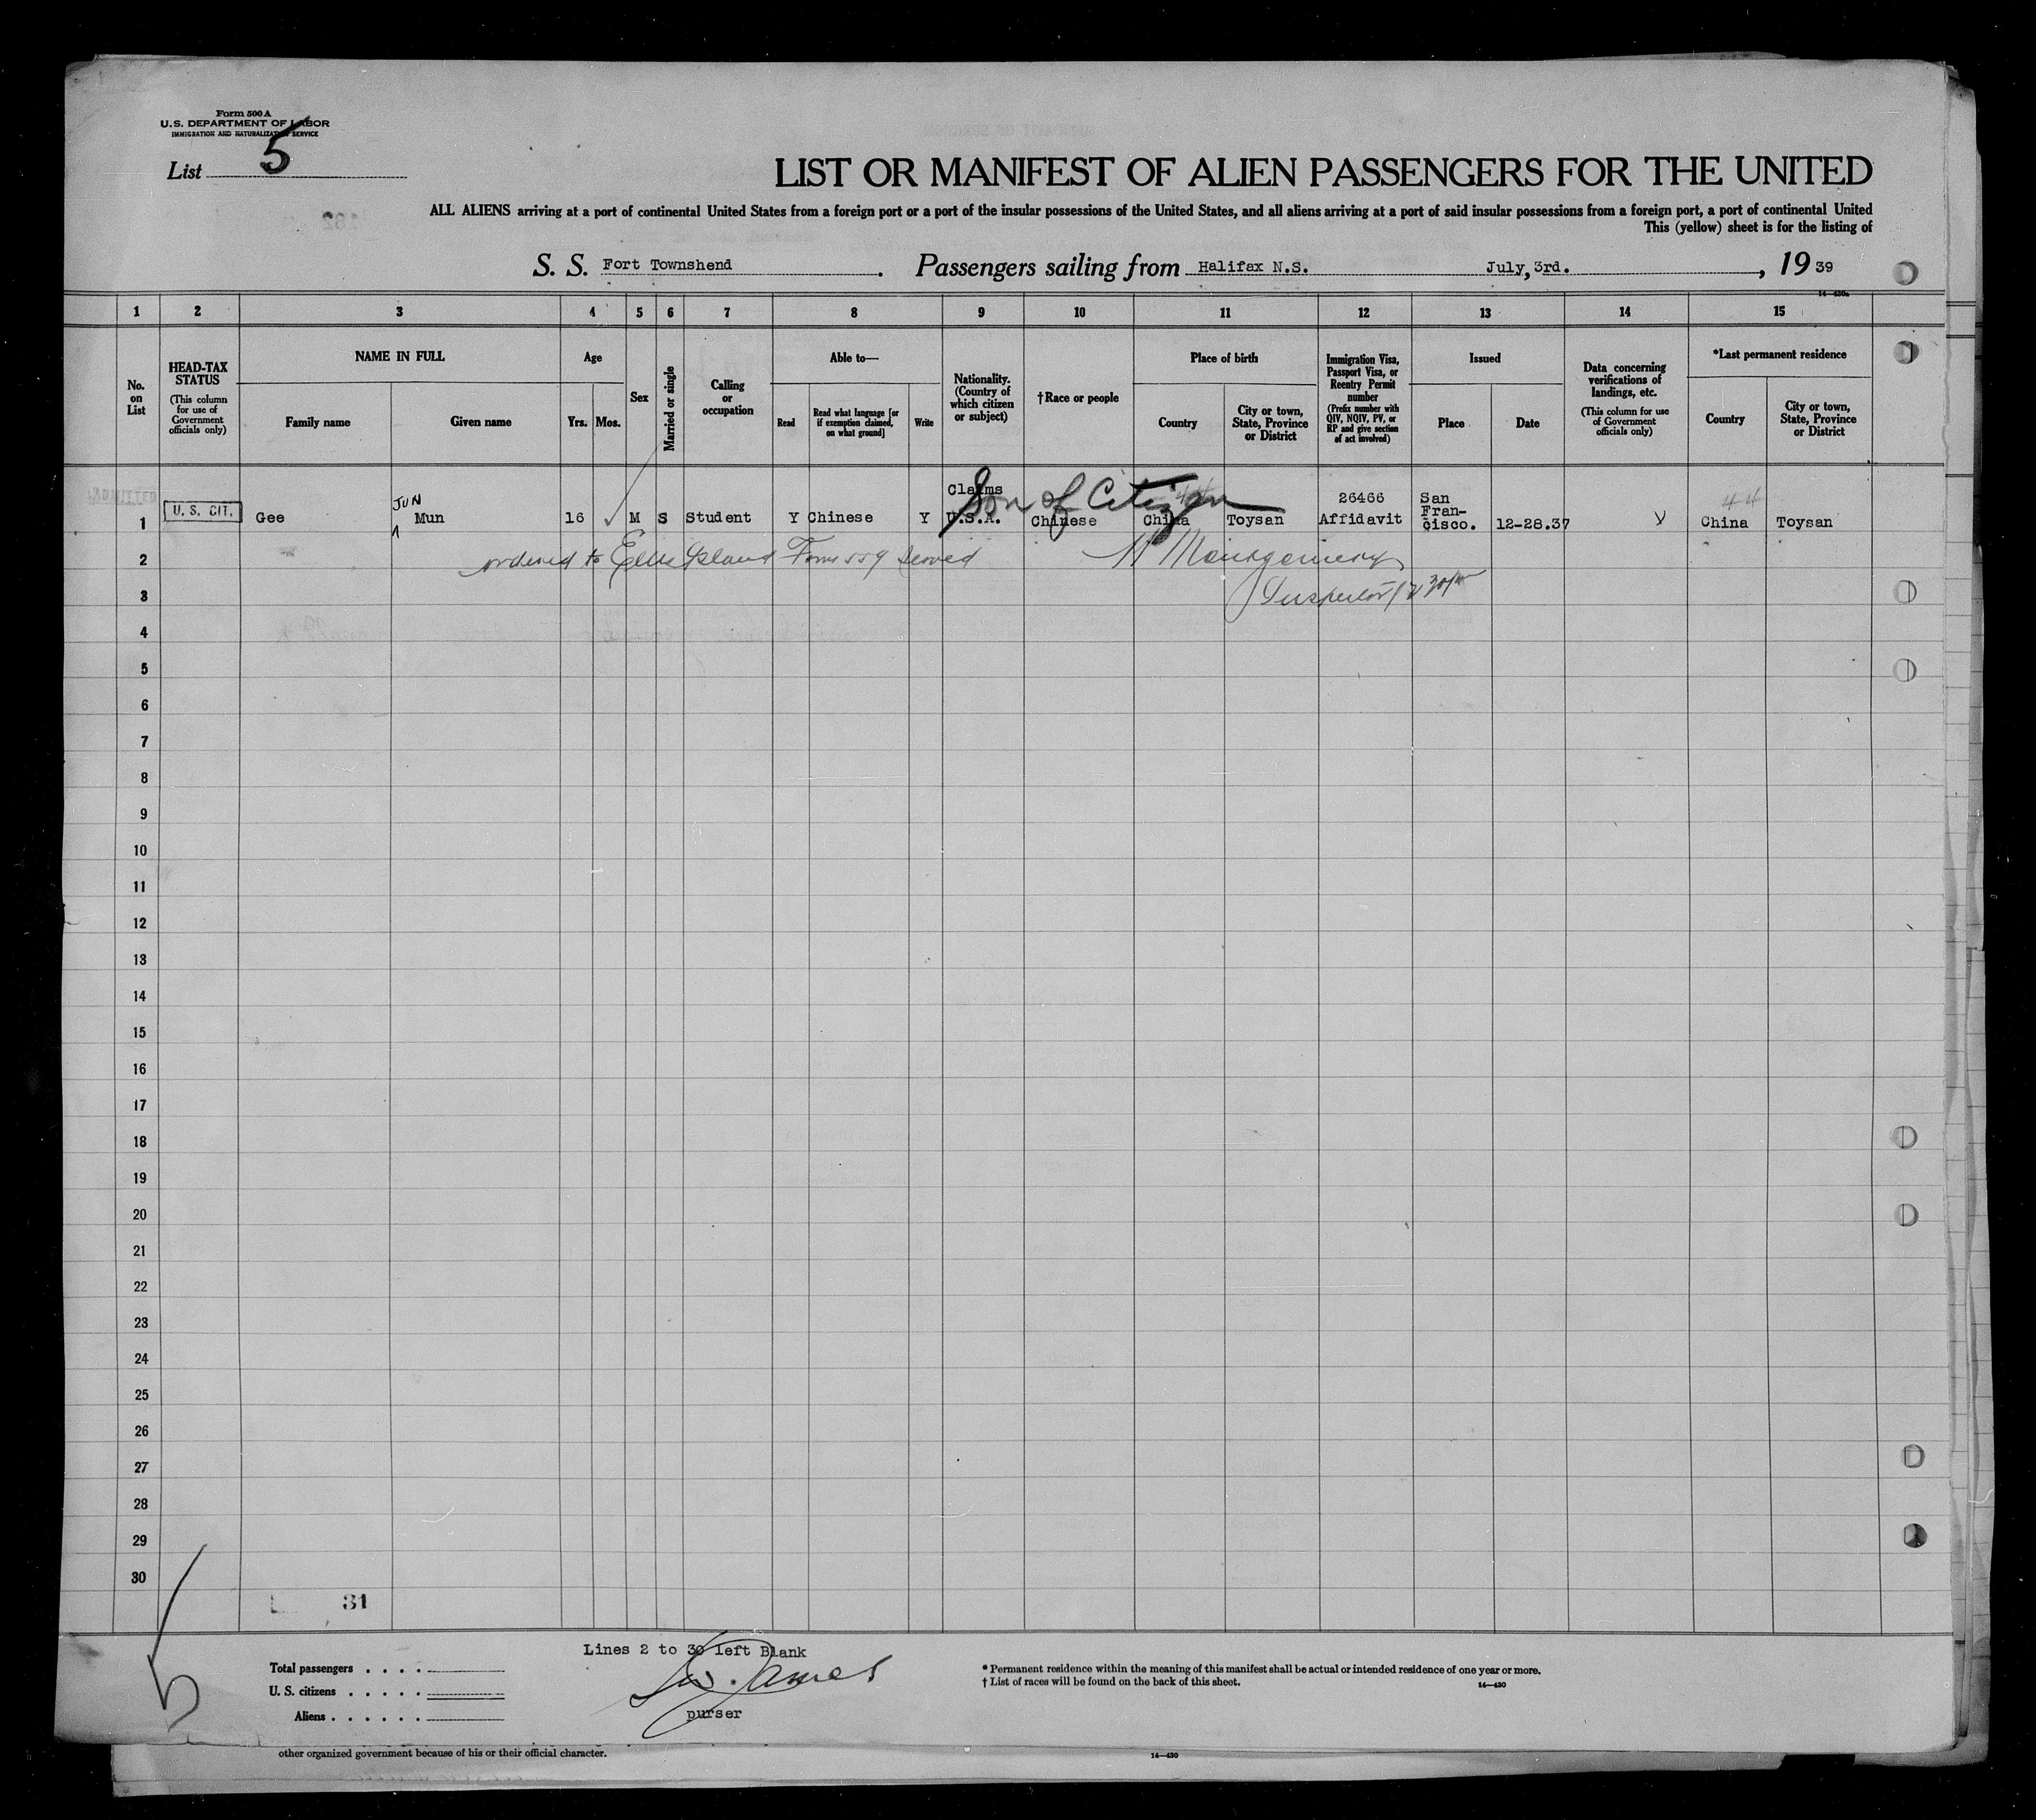 Form 500 A
U.S. DEPARTMENT OF LABOR
IMMIGRATION AND NATURALIZATION SERVICE
List 5
LIST OR MANIFEST OF ALIEN PASSENGERS FOR THE UNITED
ALL ALIENS arriving at a port of continental United States from a foreign port or a port of the insular possessions of the United States, and all aliens arriving at a port of said insular possessions from a foreign port, a port of continental United
This (yellow) sheet is for the listing of
S. S. Fort Townshend. Passengers sailing from Halifax N.S. July, 3rd., 1939
14—430a
1 2 3 4 5 6 7 8 9 10 11 12 13 14 15
No. on List
HEAD-TAX STATUS
(This column for use of Government officials only)
NAME IN FULL
Family name
Given name
Age
Yrs. Mos.
Sex
Married or single
Calling or occupation
Able to—
Read
Read what language [or if exemption claimed, on what ground]
Write
Nationality. (Country of which citizen or subject)
†Race or people
Place of birth
Country
City or town, State, Province or District
Immigration Visa, Passport Visa, or Reentry Permit number
(Prefix number with QIV, NQIV, PV, or RP and give section of act involved)
Issued
Place
Date
Data concerning verifications of landings, etc.
(This column for use of Government officials only)
*Last permanent residence
Country
City or town, State, Province or District
ADMITTED
1 U. S. CIT. Gee JUN Mun 16 M S Student Y Chinese Y Claims U.S.A. Son of Citizen Chinese China Toysan 26466 Affidavit San Fran-cisco. 12-28.37 44 China Toysan
2 ordered to Ellis Island Form 559 served M Montgomery
3 Inspector
4
5
6
7
8
9
10
11
12
13
14
15
16
17
18
19
20
21
22
23
24
25
26
27
28
29
30
31
Lines 2 to 30 left Blank
Total passengers . . . .
U. S. citizens . . . . .
Aliens . . . . . .
James
purser
* Permanent residence within the meaning of this manifest shall be actual or intended residence of one year or more.
† List of races will be found on the back of this sheet.
14—430
5
other organized government because of his or their official character.
14—430